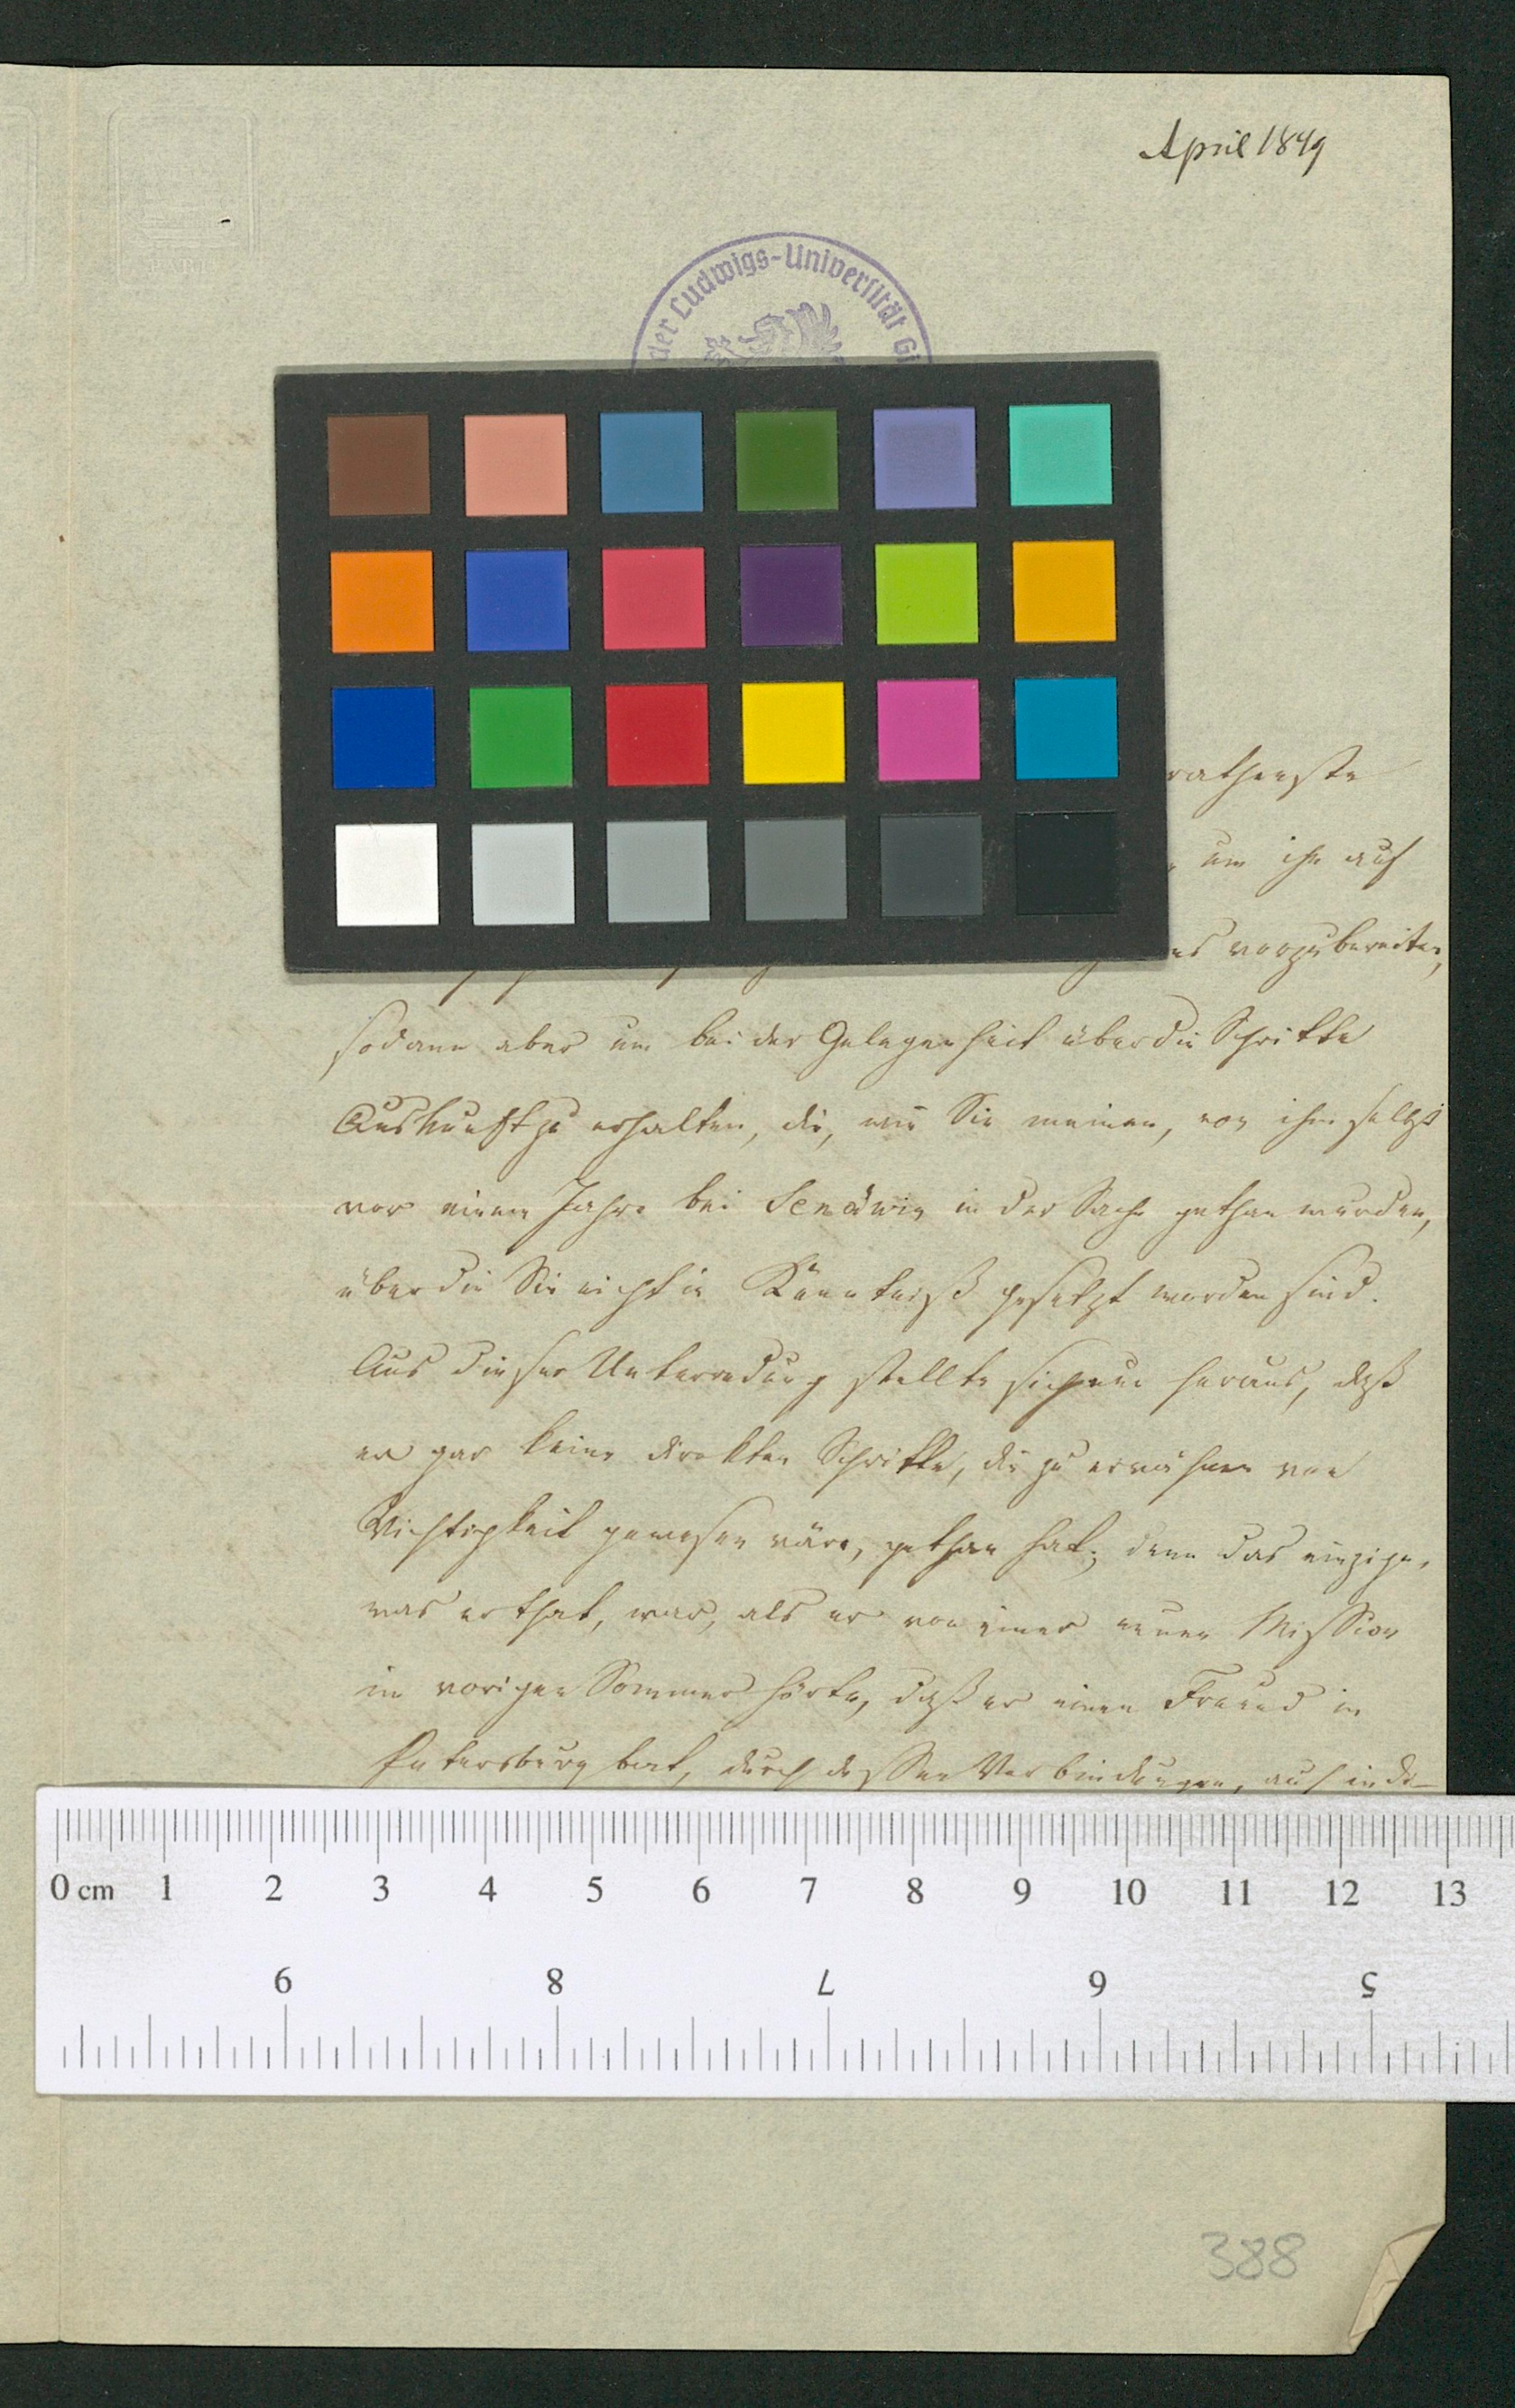 April 1849
der Ludwigs-Universität Gi
rathenste
um ihn auf
es vorzubereiten,
sodann aber um bei der Gelegenheit über die Schritte
Auskunft zu erhalten, die, wie Sie meinen, von ihm selbst
vor einem Jahre bei in der Sache gethan wurden,
über die Sie nicht in Kenntniß gesetzt worden sind.
Aus dieser Unterredung stellte sich nun heraus, daß
er gar keine direkten Schritte, die zu erwähnen von
Wichtigkeit gewesen wäre, gethan hat; denn das einzige,
was er that, war, als er von einer neuen Mission
im vorigen Sommer hörte, daß er einen Freund in
Petersburg bat, durch dessen Verbindungen, auf indi-
0 cm 1 2 3 4 5 6 7 8 9 10 11 12 13
9 8 7 6 5
388